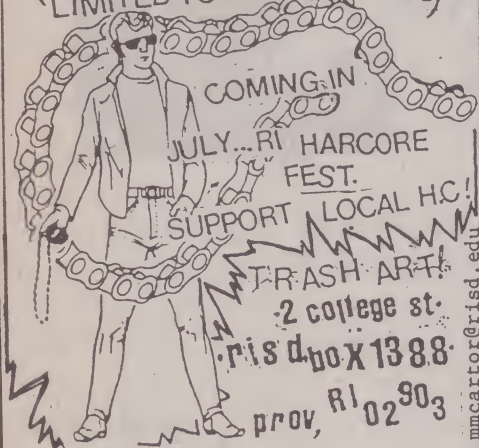 LIMITED TO
COMING IN
JULY...RI HARCORE
FEST.
SUPPORT LOCAL H.C!
TRASH ART!
·2 college st·
·risd box 1388·
prov, RI 02903
mmcartor@risd.edu